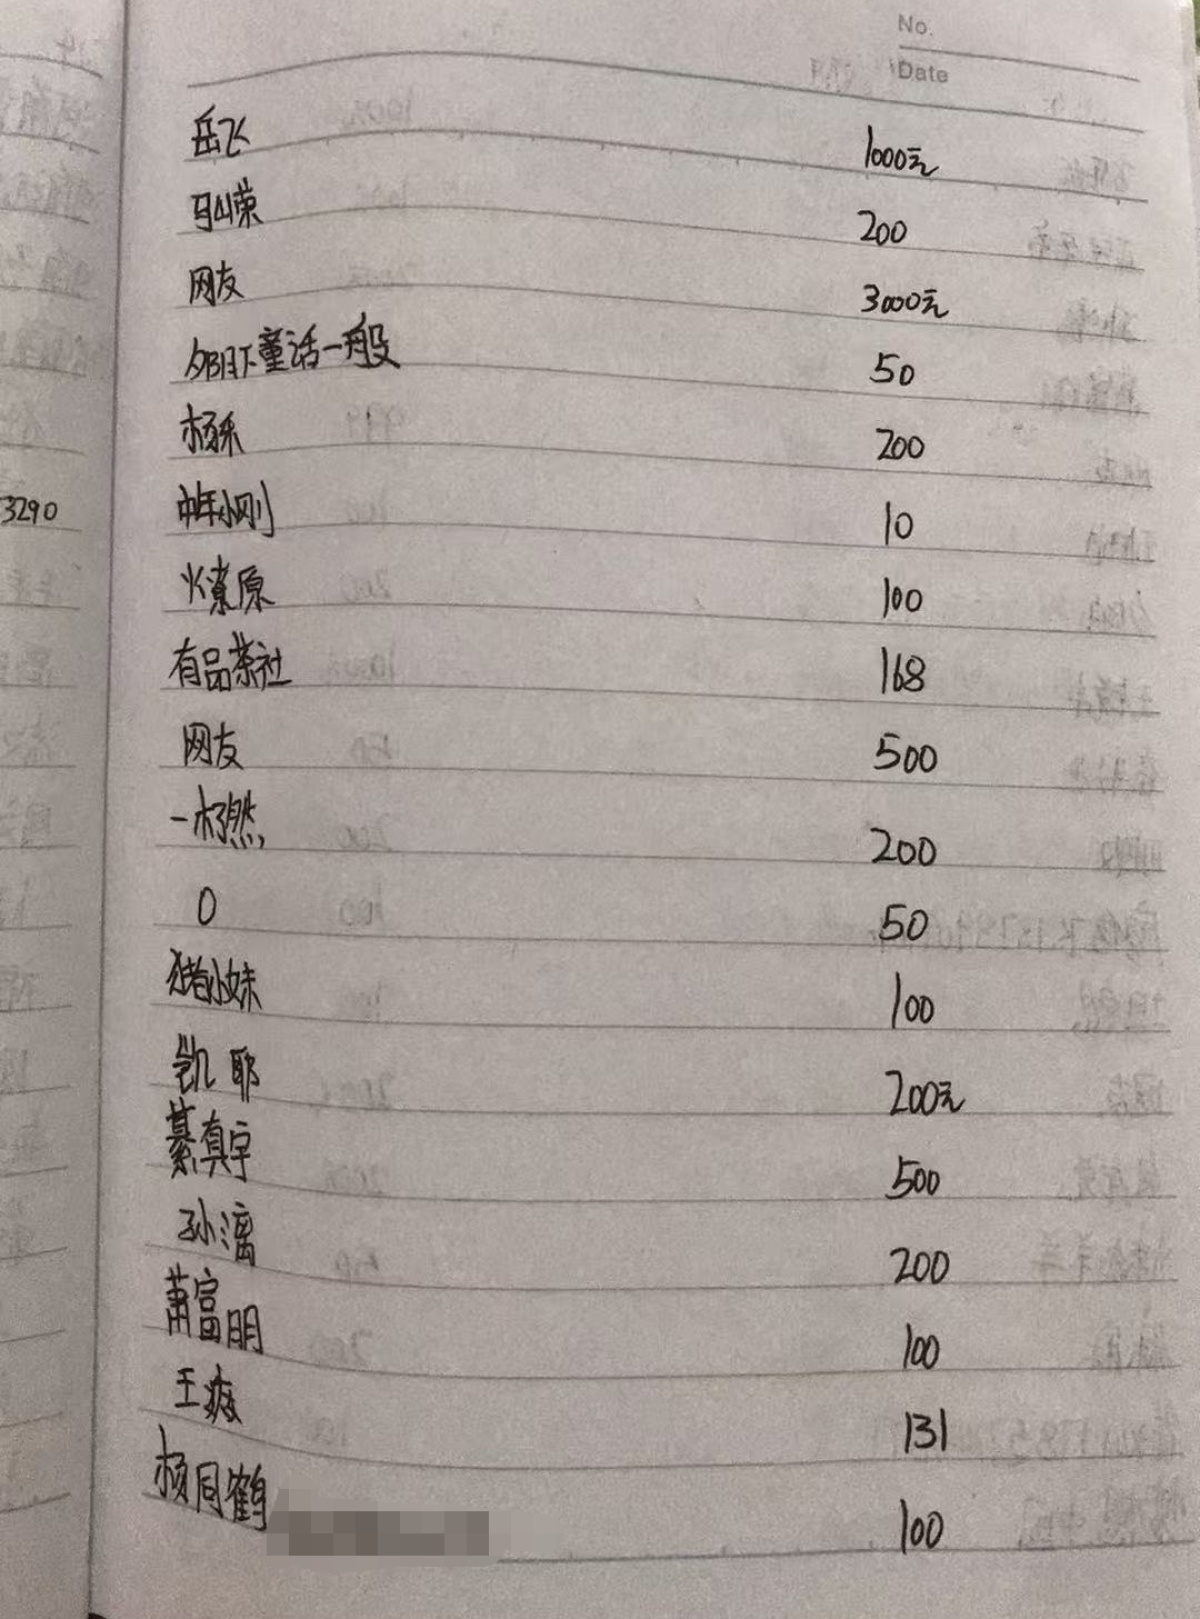 No.
Date
岳飞 1000元
马山荣 200
网友 3000元
夕阳下童话一般 50
杨禾 200
中年小刚 10
火燎原 100
有品茶社 168
网友 500
一杨然 200
O 50
猪小妹 100
凯耶 200元
綦真宇 500
孙漓 200
萧富明 100
王 131
杨同鹤 100
3290